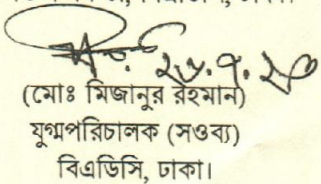 (মোঃ মিজানুর রহমান)
যুগ্মপরিচালক (সওব্য)
বিএডিসি, ঢাকা।